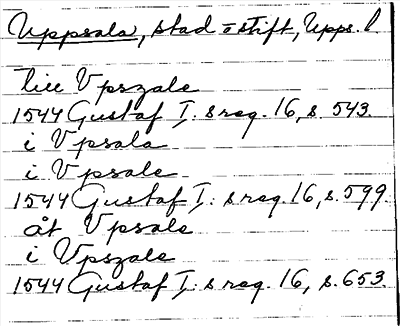 Uppsala, stad o stift, Upps. l
till Vpszale
1544 Gustaf I: s reg. 16, s. 543.
i Vpsala
i Vpsale
1544 Gustaf I: s reg. 16, s. 599.
åt Vpsale
i Vpszale
1544 Gustaf I: s reg. 16, s. 653.